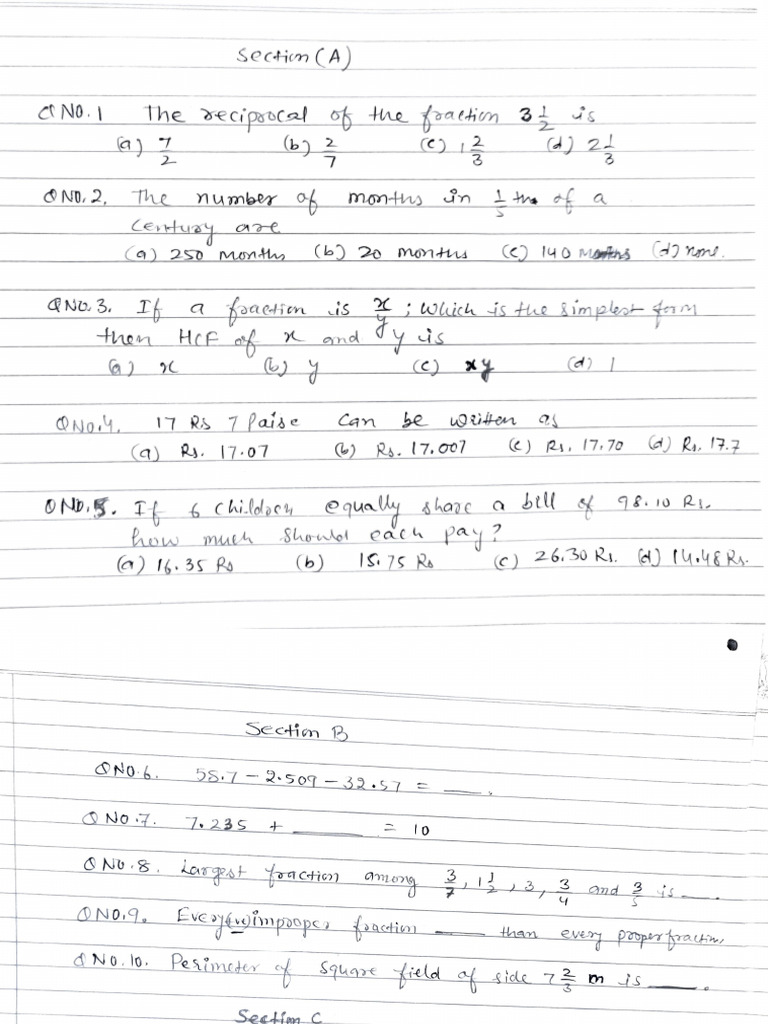 Section (A)
Q NO. 1 The reciprocal of the fraction 3 1/2 is
(a) 7/2 (b) 2/7 (c) 1 2/3 (d) 2 1/3
Q NO. 2. The number of months in 1/5 th of a
century are
(a) 250 months (b) 20 months (c) 140 months (d) none.
Q NO. 3. If a fraction is x/y ; which is the simplest form
then HCF of x and y is
(a) x (b) y (c) xy (d) 1
Q NO. 4. 17 Rs 7 Paise can be written as
(a) Rs. 17.07 (b) Rs. 17.007 (c) Rs. 17.70 (d) Rs. 17.7
Q NO. 5. If 6 children equally share a bill of 98.10 Rs.
how much should each pay?
(a) 16.35 Rs (b) 15.75 Rs (c) 26.30 Rs. (d) 14.48 Rs.
Section B
Q NO. 6. 58.7 - 2.509 - 32.57 = ___.
Q NO. 7. 7.235 + ___ = 10
Q NO. 8. Largest fraction among 3/7, 1 1/2, 3, 3/4 and 3/5 is ___.
Q NO. 9. Every (+ve) improper fraction ___ than every proper fraction.
Q NO. 10. Perimeter of square field of side 7 2/3 m is ___.
Section C